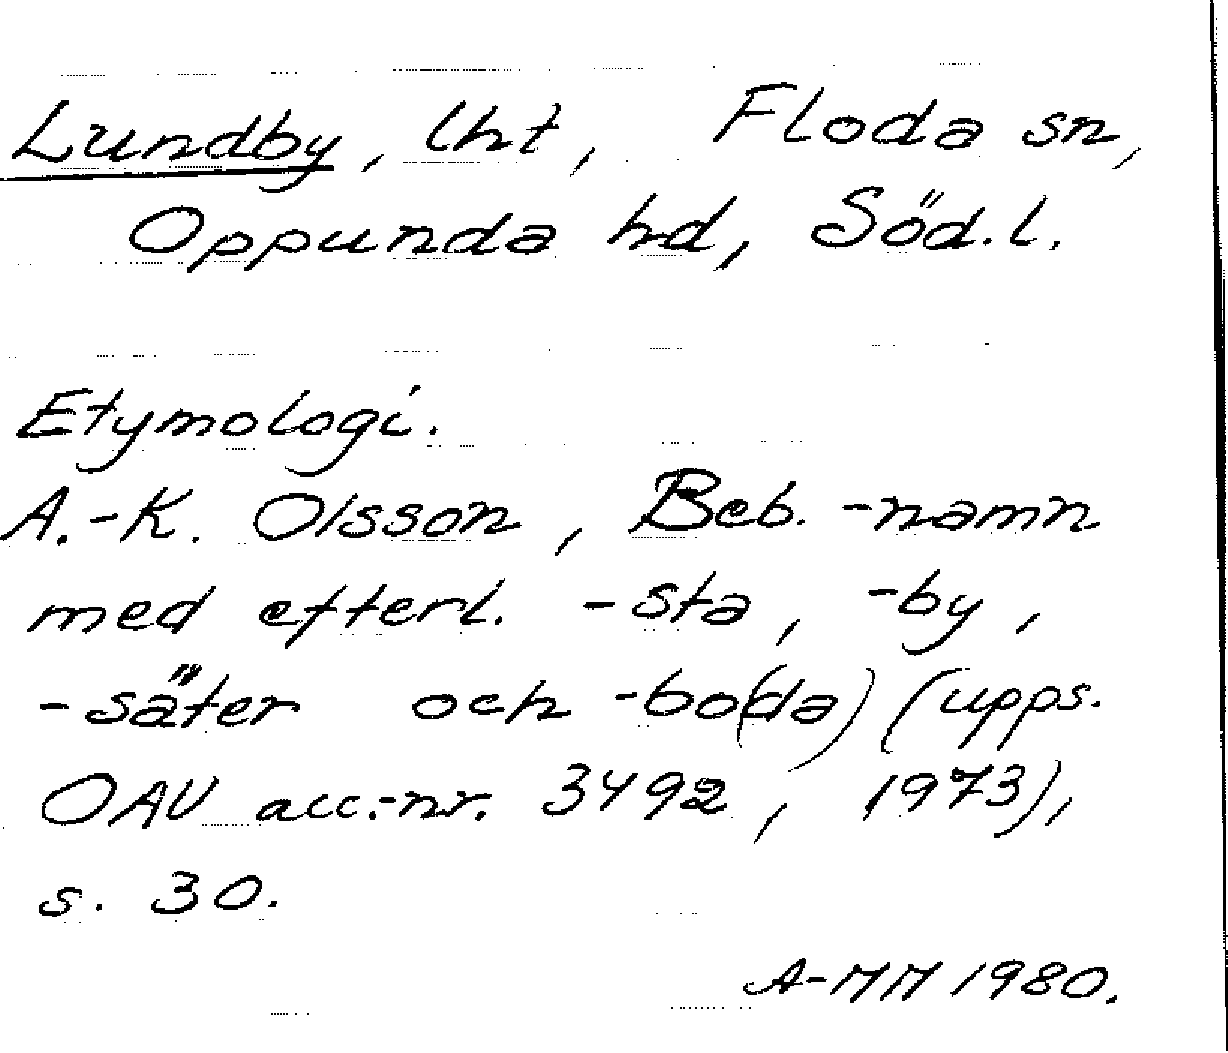 Lundby, lht, Floda sn,
Oppunda hd, Söd.l.
Etymologi.
A.-K. Olsson, Beb.-namn
med efterl. -sta, -by,
-säter och -bo(da) (upps.
OAU acc.-nr. 3492, 1973),
s. 30.
A-MM 1980.